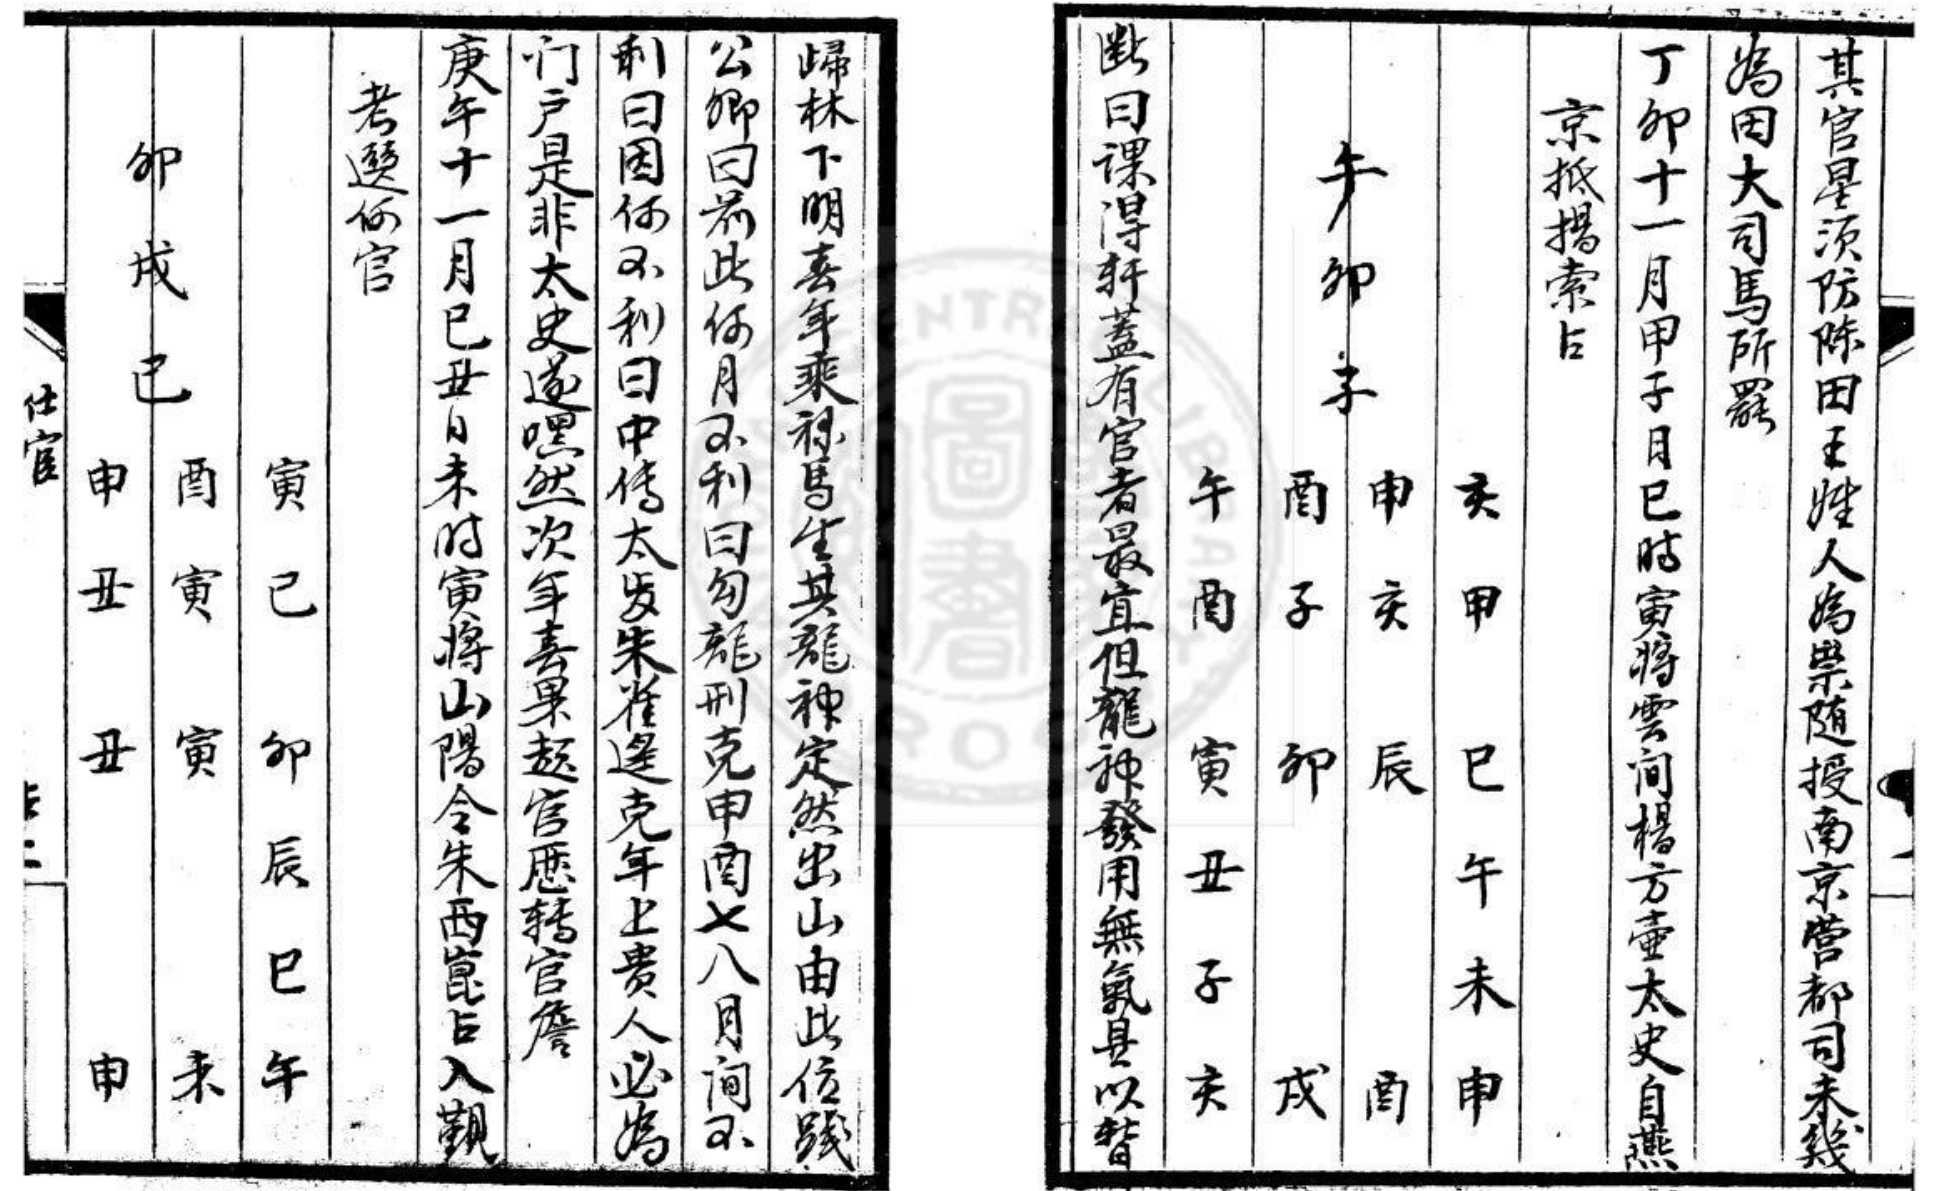 其官星須防陈田王姓人為祟随授南京营都司未幾
為田大司馬所罷
丁卯十一月甲子月巳時寅將雲间楊方壷太史自燕
京抵揚索占
午
卯
子
亥甲巳午未申
申亥辰酉
酉子卯戌
午酉寅丑子亥
断曰课得轩蓋有官者最宜但龍神發用無氣具以暂
歸林下明春年乘禄馬生其龍神定然出山由此位踐
公卿曰前此何月不利曰勾龍刑克申酉七八月间不
利曰因何不利曰中傳太歲朱雀遙克年上贵人必為
门户是非太史遂嘿然次年春果起官歷转官詹
庚午十一月巳丑日未时寅將山陽令朱西崑占入觀
考選何官
卯
戌
巳
寅巳卯辰巳午
酉寅寅未
申丑丑申
仕宦